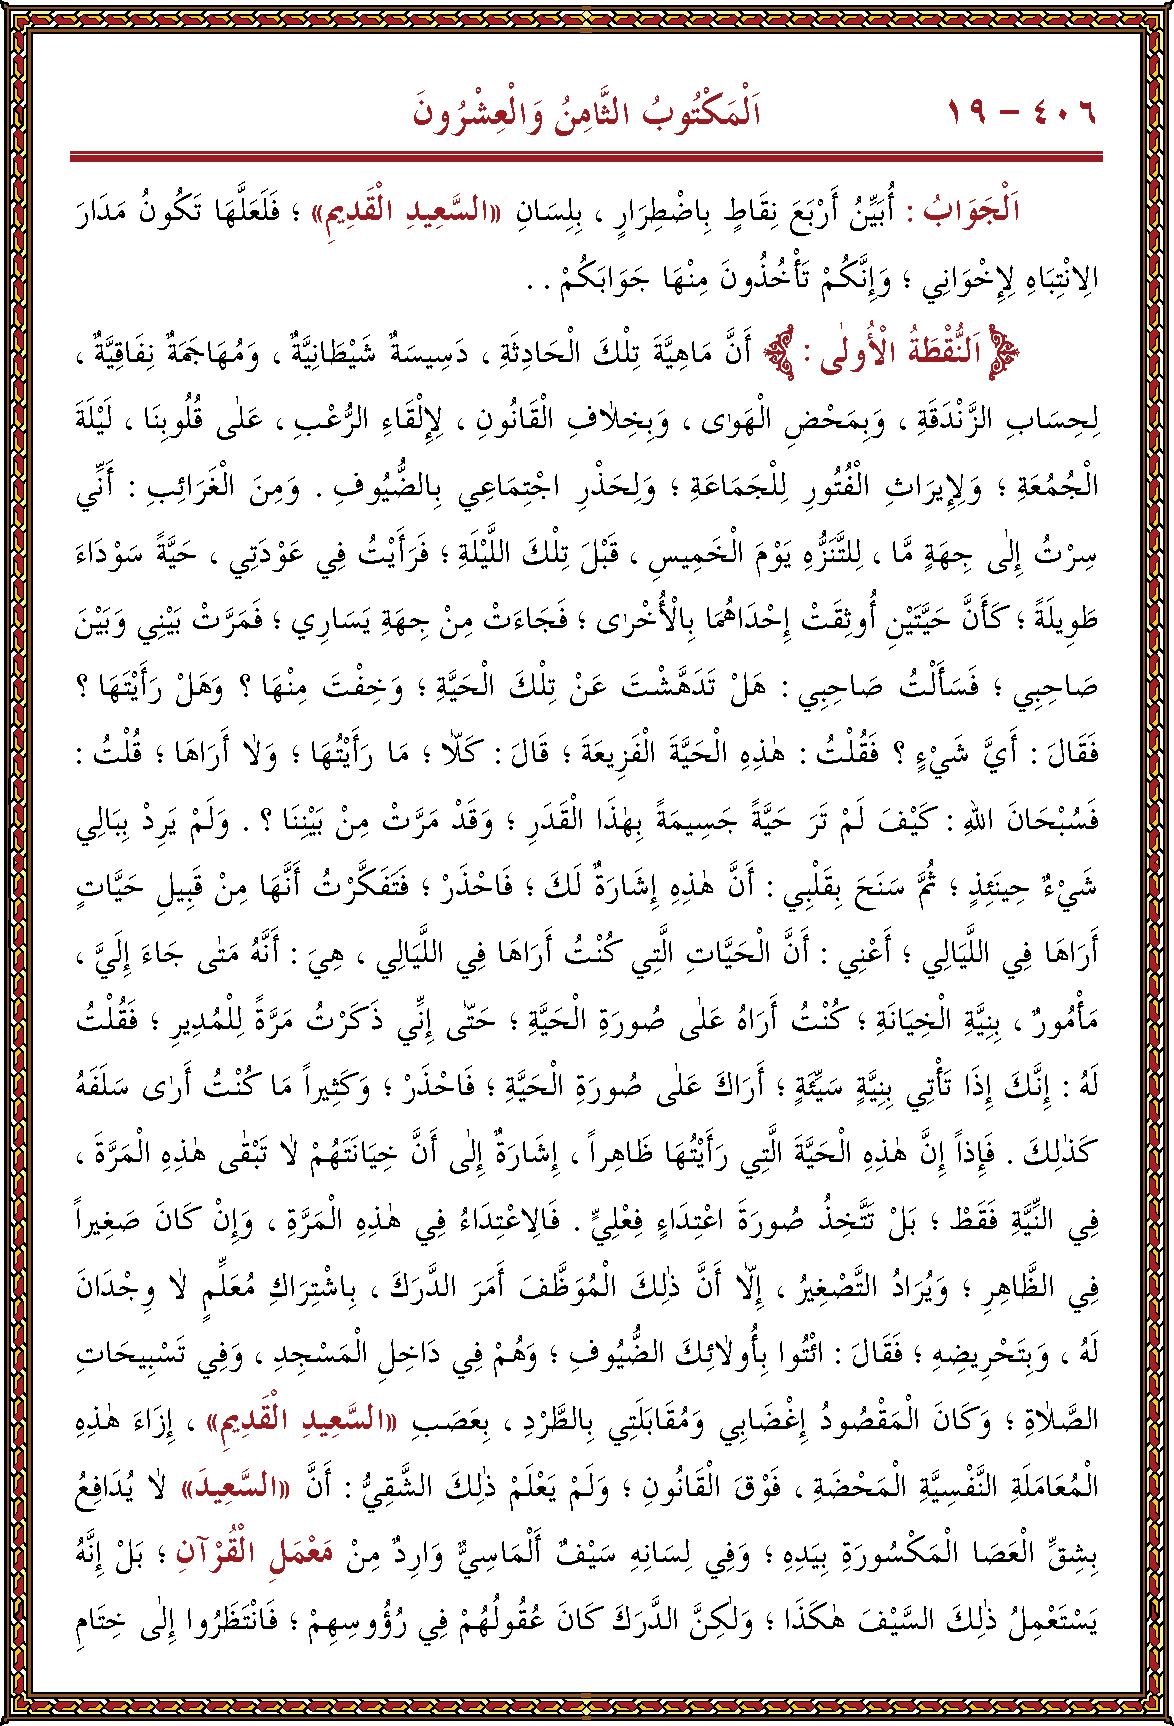 ٤٠٦ – ١٩ اَلْمَكْتُوبُ الثَّامِنُ وَالْعِشْرُونَ
اَلْجَوَابُ : أُبَيِّنُ أَرْبَعَ نِقَاطٍ بِاضْطِرَارٍ ، بِلِسَانِ «السَّعِيدِ الْقَدِيمِ» ؛ فَلَعَلَّهَا تَكُونُ مَدَارَ
الِانْتِبَاهِ لِإِخْوَانِي ؛ وَإِنَّكُمْ تَأْخُذُونَ مِنْهَا جَوَابَكُمْ . .
﴿ اَلنُّقْطَةُ الْأُولٰى : ﴾ أَنَّ مَاهِيَّةَ تِلْكَ الْحَادِثَةِ ، دَسِيسَةٌ شَيْطَانِيَّةٌ ، وَمُهَاجَمَةٌ نِفَاقِيَّةٌ ،
لِحِسَابِ الزَّنْدَقَةِ ، وَبِمَحْضِ الْهَوٰى ، وَبِخِلَافِ الْقَانُونِ ، لِإِلْقَاءِ الرُّعْبِ ، عَلٰى قُلُوبِنَا ، لَيْلَةَ
الْجُمُعَةِ ؛ وَلِإِيرَاثِ الْفُتُورِ لِلْجَمَاعَةِ ؛ وَلِحَذْرِ اجْتِمَاعِي بِالضُّيُوفِ . وَمِنَ الْغَرَائِبِ : أَنِّي
سِرْتُ إِلٰى جِهَةٍ مَّا ، لِلتَّنَزُّهِ يَوْمَ الْخَمِيسِ ، قَبْلَ تِلْكَ اللَّيْلَةِ ؛ فَرَأَيْتُ فِي عَوْدَتِي ، حَيَّةً سَوْدَاءَ
طَوِيلَةً ؛ كَأَنَّ حَيَّتَيْنِ أُوثِقَتْ إِحْدَاهُمَا بِالْأُخْرٰى ؛ فَجَاءَتْ مِنْ جِهَةِ يَسَارِي ؛ فَمَرَّتْ بَيْنِي وَبَيْنَ
صَاحِبِي ؛ فَسَأَلْتُ صَاحِبِي : هَلْ تَدَهَّشْتَ عَنْ تِلْكَ الْحَيَّةِ ؛ وَخِفْتَ مِنْهَا ؟ وَهَلْ رَأَيْتَهَا ؟
فَقَالَ : أَيَّ شَيْءٍ ؟ فَقُلْتُ : هٰذِهِ الْحَيَّةَ الْفَزِيعَةَ ؛ قَالَ : كَلَّا ؛ مَا رَأَيْتُهَا ؛ وَلَا أَرَاهَا ؛ قُلْتُ :
فَسُبْحَانَ اللهِ : كَيْفَ لَمْ تَرَ حَيَّةً جَسِيمَةً بِهٰذَا الْقَدَرِ ؛ وَقَدْ مَرَّتْ مِنْ بَيْنِنَا ؟ . وَلَمْ يَرِدْ بِبَالِي
شَيْءٌ حِينَئِذٍ ؛ ثُمَّ سَنَحَ بِقَلْبِي : أَنَّ هٰذِهِ إِشَارَةٌ لَكَ ؛ فَاحْذَرْ ؛ فَتَفَكَّرْتُ أَنَّهَا مِنْ قَبِيلِ حَيَّاتٍ
أَرَاهَا فِي اللَّيَالِي ؛ أَعْنِي : أَنَّ الْحَيَّاتِ الَّتِي كُنْتُ أَرَاهَا فِي اللَّيَالِي ، هِيَ : أَنَّهُ مَتٰى جَاءَ إِلَيَّ ،
مَأْمُورٌ ، بِنِيَّةِ الْخِيَانَةِ ؛ كُنْتُ أَرَاهُ عَلٰى صُورَةِ الْحَيَّةِ ؛ حَتّٰى إِنِّي ذَكَرْتُ مَرَّةً لِلْمُدِيرِ ؛ فَقُلْتُ
لَهُ : إِنَّكَ إِذَا تَأْتِي بِنِيَّةٍ سَيِّئَةٍ ؛ أَرَاكَ عَلٰى صُورَةِ الْحَيَّةِ ؛ فَاحْذَرْ ؛ وَكَثِيراً مَا كُنْتُ أَرٰى سَلَفَهُ
كَذٰلِكَ . فَإِذاً إِنَّ هٰذِهِ الْحَيَّةَ الَّتِي رَأَيْتُهَا ظَاهِراً ، إِشَارَةٌ إِلٰى أَنَّ خِيَانَتَهُمْ لَا تَبْقٰى هٰذِهِ الْمَرَّةَ ،
فِي النِّيَّةِ فَقَطْ ؛ بَلْ تَتَّخِذُ صُورَةَ اعْتِدَاءٍ فِعْلِيٍّ . فَالِاعْتِدَاءُ فِي هٰذِهِ الْمَرَّةِ ، وَإِنْ كَانَ صَغِيراً
فِي الظَّاهِرِ ؛ وَيُرَادُ التَّصْغِيرُ ، إِلَّا أَنَّ ذٰلِكَ الْمُوَظَّفَ أَمَرَ الدَّرَكَ ، بِاشْتِرَاكِ مُعَلِّمٍ لَا وِجْدَانَ
لَهُ ، وَبِتَحْرِيضِهِ ؛ فَقَالَ : ائْتُوا بِأُولَائِكَ الضُّيُوفِ ؛ وَهُمْ فِي دَاخِلِ الْمَسْجِدِ ، وَفِي تَسْبِيحَاتِ
الصَّلَاةِ ؛ وَكَانَ الْمَقْصُودُ إِغْضَابِي وَمُقَابَلَتِي بِالطَّرْدِ ، بِعَصَبِ «السَّعِيدِ الْقَدِيمِ» ، إِزَاءَ هٰذِهِ
الْمُعَامَلَةِ النَّفْسِيَّةِ الْمَحْضَةِ ، فَوْقَ الْقَانُونِ ؛ وَلَمْ يَعْلَمْ ذٰلِكَ الشَّقِيُّ : أَنَّ «السَّعِيدَ» لَا يُدَافِعُ
بِشِقِّ الْعَصَا الْمَكْسُورَةِ بِيَدِهِ ؛ وَفِي لِسَانِهِ سَيْفٌ أَلْمَاسِيٌّ وَارِدٌ مِنْ مَعْمَلِ الْقُرْآنِ ؛ بَلْ إِنَّهُ
يَسْتَعْمِلُ ذٰلِكَ السَّيْفَ هٰكَذَا ؛ وَلٰكِنَّ الدَّرَكَ كَانَ عُقُولُهُمْ فِي رُؤُوسِهِمْ ؛ فَانْتَظَرُوا إِلٰى خِتَامِ